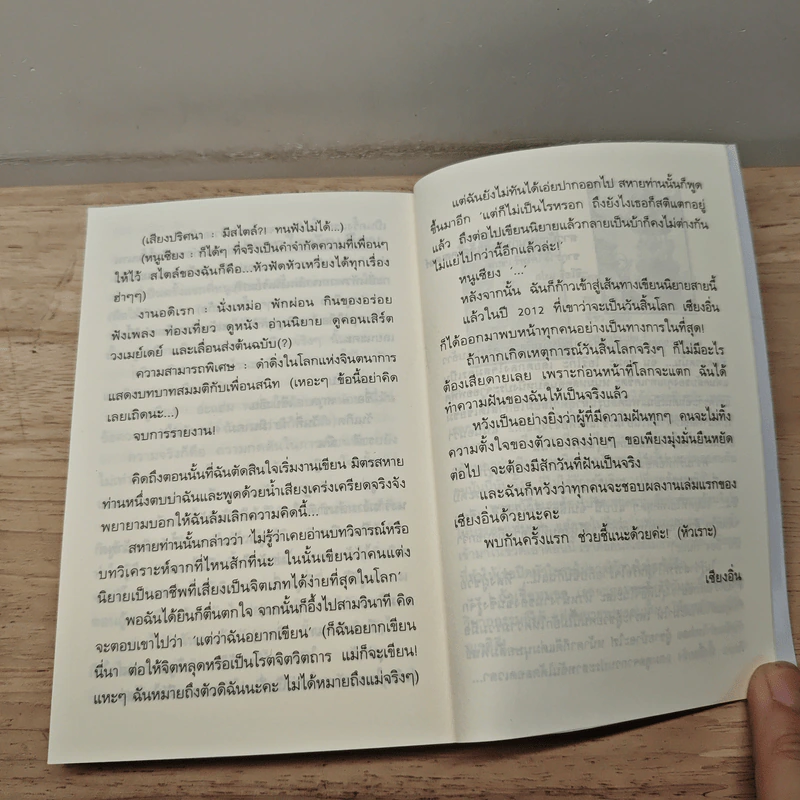 (เสียงปริศนา : มีสไตล์?! ทนฟังไม่ได้...)
(หนูเซียง : ก็ได้ๆ ที่จริงเป็นคำจำกัดความที่เพื่อนๆ
ให้ไว้ สไตล์ของฉันก็คือ...หัวฟัดหัวเหวี่ยงได้ทุกเรื่อง
ฮ่าๆๆ)
งานอดิเรก : นั่งเหม่อ พักผ่อน กินของอร่อย
ฟังเพลง ท่องเที่ยว ดูหนัง อ่านนิยาย ดูคอนเสิร์ต
วงเมย์เดย์ และเลื่อนส่งต้นฉบับ(?)
ความสามารถพิเศษ : ดำดิ่งในโลกแห่งจินตนาการ
แสดงบทบาทสมมติกับเพื่อนสนิท (เหอะๆ ข้อนี้อย่าคิด
เลยเถิดนะ...)
จบการรายงาน!
คิดถึงตอนนั้นที่ฉันตัดสินใจเริ่มงานเขียน มิตรสหาย
ท่านหนึ่งตบบ่าฉันและพูดด้วยน้ำเสียงเคร่งเครียดจริงจัง
พยายามบอกให้ฉันล้มเลิกความคิดนี้...
สหายท่านนั้นกล่าวว่า 'ไม่รู้ว่าเคยอ่านบทวิจารณ์หรือ
บทวิเคราะห์จากที่ไหนสักที่นะ ในนั้นเขียนว่าคนแต่ง
นิยายเป็นอาชีพที่เสี่ยงเป็นจิตเภทได้ง่ายที่สุดในโลก'
พอฉันได้ยินก็ตื่นตกใจ จากนั้นก็อึ้งไปสามวินาที คิด
จะตอบเขาไปว่า 'แต่ว่าฉันอยากเขียน' (ก็ฉันอยากเขียน
นี่นา ต่อให้จิตหลุดหรือเป็นโรคจิตวิตถาร แม่ก็จะเขียน!
แหะๆ ฉันหมายถึงตัวดิฉันนะคะ ไม่ได้หมายถึงแม่จริงๆ)
แต่ฉันยังไม่ทันได้เอ่ยปากออกไป สหายท่านนั้นก็พูด
ขึ้นมาอีก 'แต่ก็ไม่เป็นไรหรอก ถึงยังไงเธอก็สติแตกอยู่
แล้ว ถึงต่อไปเขียนนิยายแล้วกลายเป็นบ้าก็คงไม่ต่างกัน
ไม่แย่ไปกว่านี้อีกแล้วล่ะ!'
หนูเซียง '...'
หลังจากนั้น ฉันก็ก้าวเข้าสู่เส้นทางเขียนนิยายสายนี้
แล้วในปี 2012 ที่เขาว่าจะเป็นวันสิ้นโลก เซียงอิ่น
ก็ได้ออกมาพบหน้าทุกคนอย่างเป็นทางการในที่สุด!
ถ้าหากเกิดเหตุการณ์วันสิ้นโลกจริงๆ ก็ไม่มีอะไร
ต้องเสียดายเลย เพราะก่อนหน้าที่โลกจะแตก ฉันได้
ทำความฝันของฉันให้เป็นจริงแล้ว
หวังเป็นอย่างยิ่งว่าผู้ที่มีความฝันทุกๆ คนจะไม่ทิ้ง
ความตั้งใจของตัวเองลงง่ายๆ ขอเพียงมุ่งมั่นยืนหยัด
ต่อไป จะต้องมีสักวันที่ฝันเป็นจริง
และฉันก็หวังว่าทุกคนจะชอบผลงานเล่มแรกของ
เซียงอิ่นด้วยนะคะ
พบกันครั้งแรก ช่วยชี้แนะด้วยค่ะ! (หัวเราะ)
เซียงอิ่น